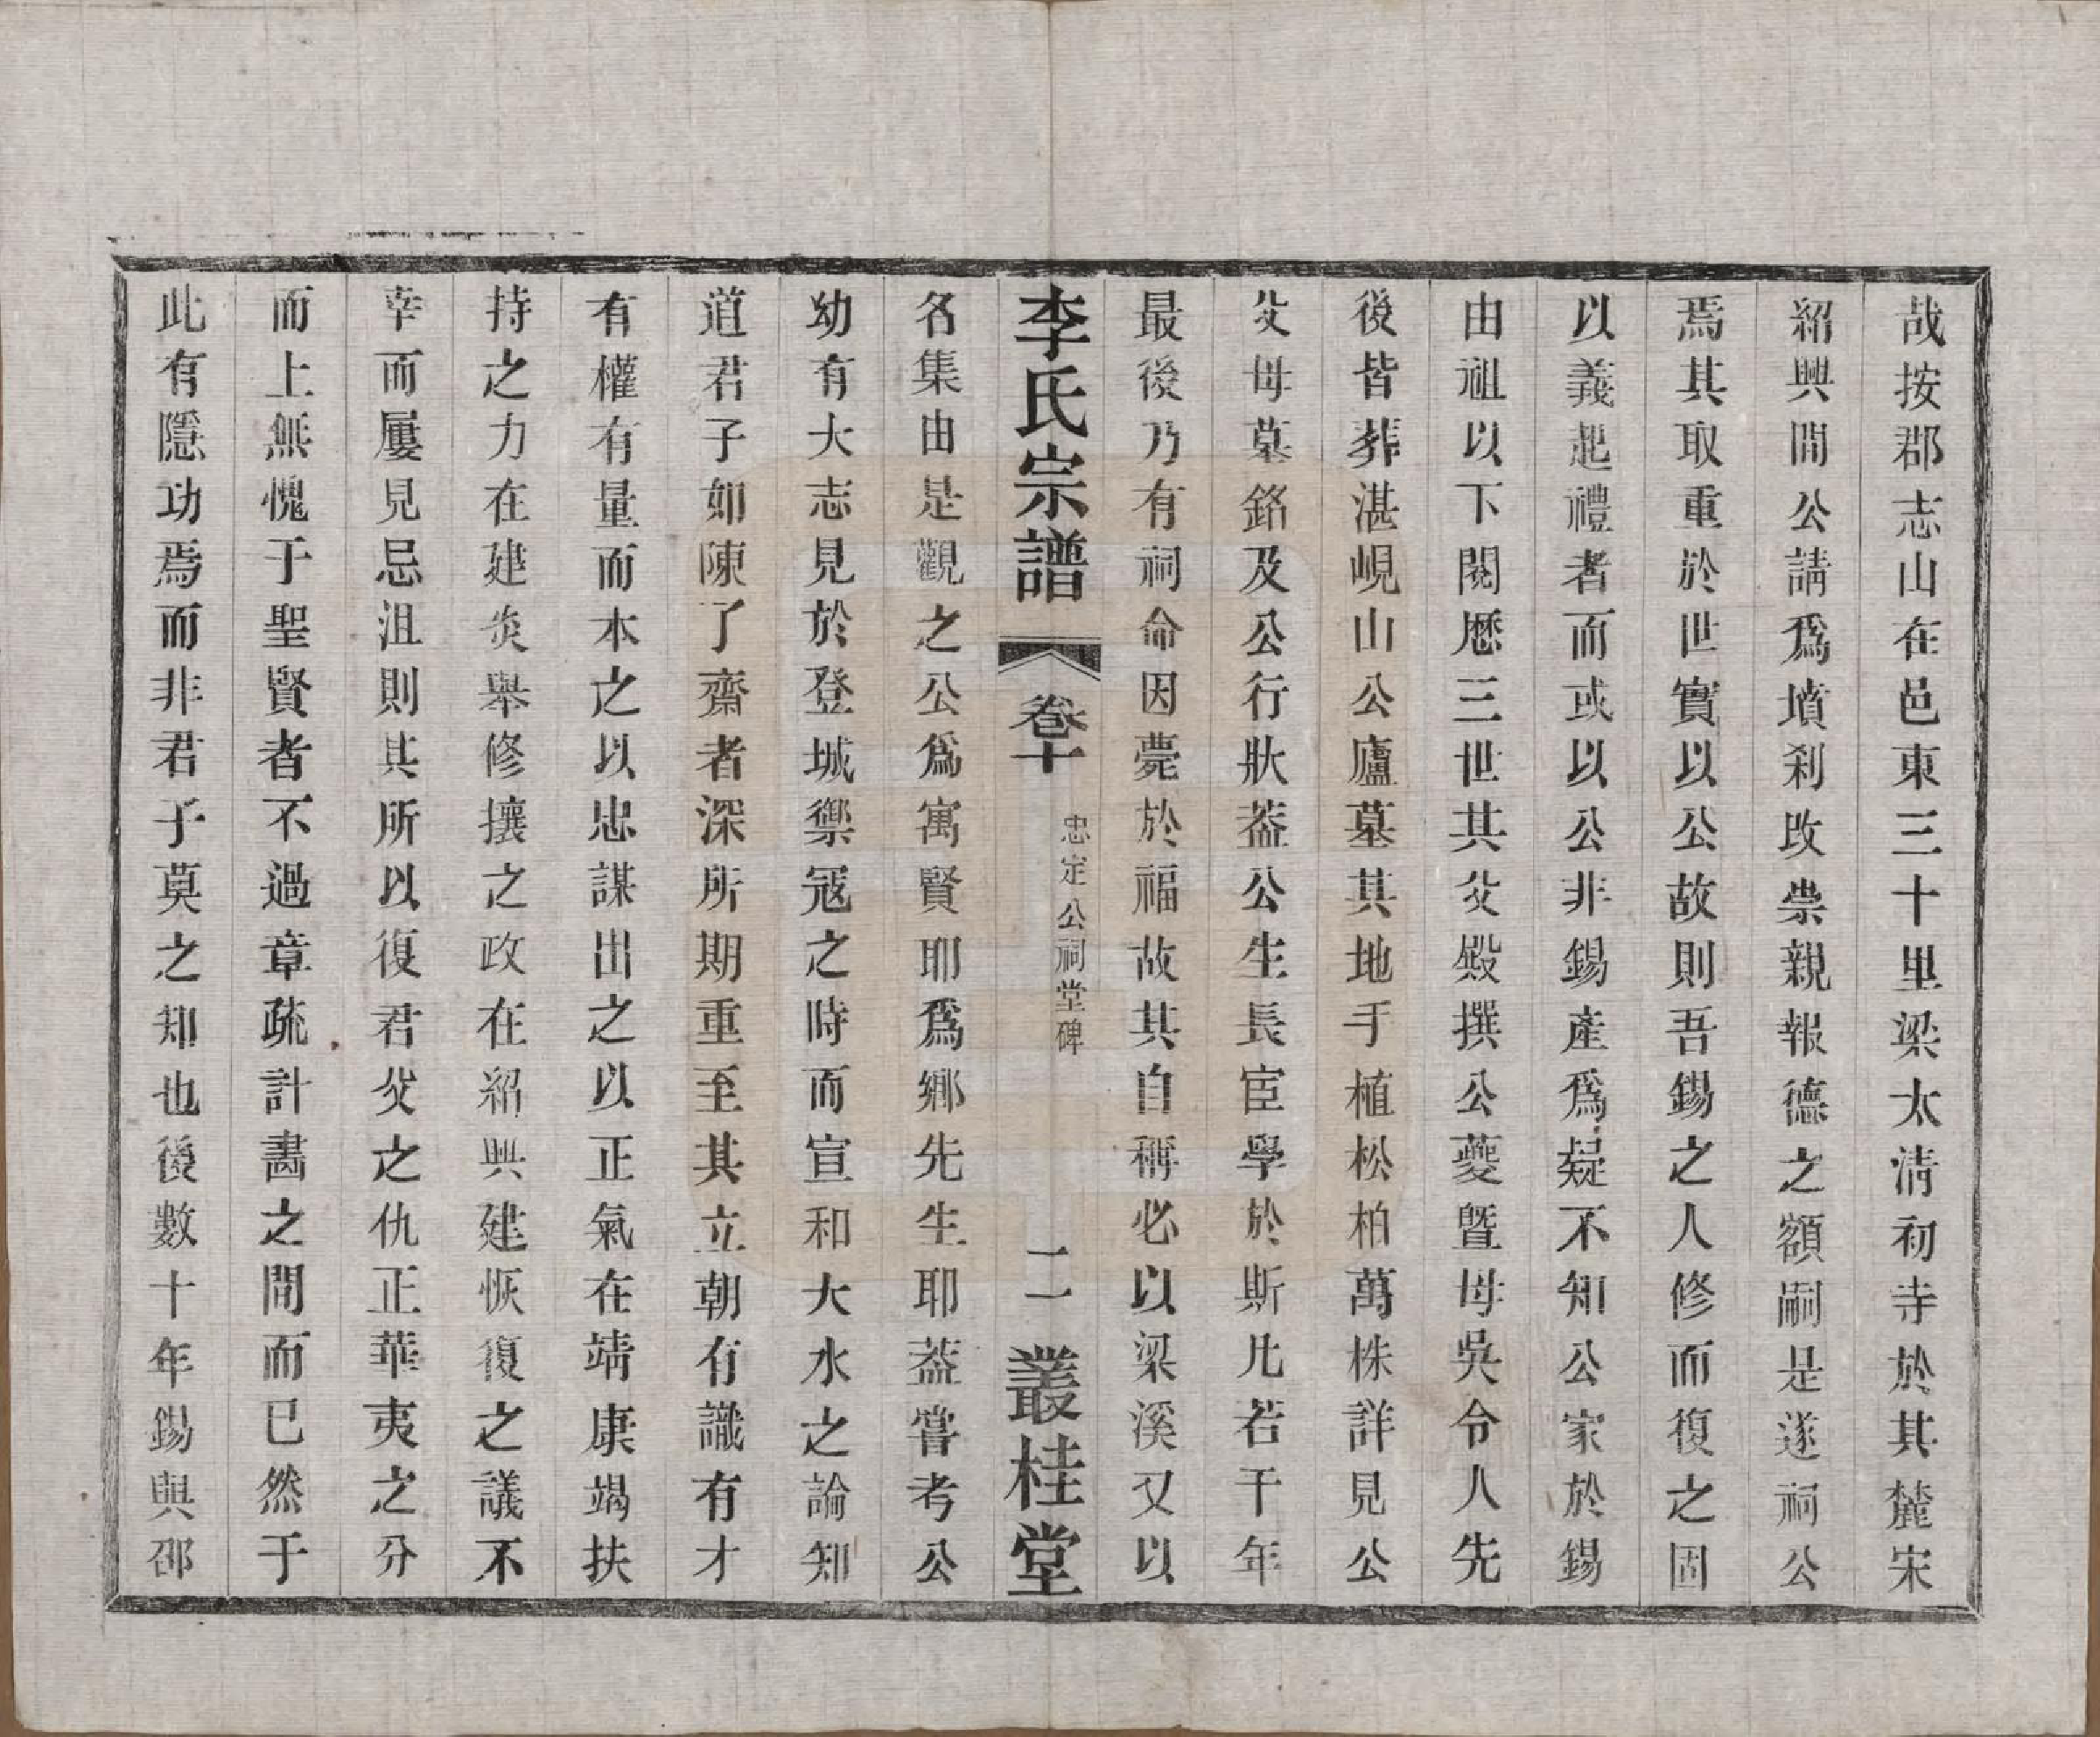 哉按郡志山在邑東三十里梁太淸初寺於其麓宋
紹興間公請爲墳刹改崇親報德之額嗣是遂祠公
焉其取重於世實以公故則吾錫之人修而復之固
以義起禮者而或以公非錫產爲疑不知公家於錫
由祖以下閱歷三世其父殿撰公夔曁母吳令人先
後皆葬湛峴山公廬墓其地手植松柏萬株詳見公
父母墓銘及公行狀葢公生長宦學於斯凡若干年
最後乃有祠命因薨於福故其自稱必以梁溪又以
李氏宗譜 卷十 忠定公祠堂碑 二 叢桂堂
名集由是觀之公爲寓賢耶爲鄉先生耶葢嘗考公
幼有大志見於登城禦冦之時而宣和大水之論知
道君子如陳了齋者深所期重至其立朝有識有才
有權有量而本之以忠謀出之以正氣在靖康竭扶
持之力在建炎舉修攘之政在紹興建恢復之議不
幸而屢見忌沮則其所以復君父之仇正華夷之分
而上無愧于聖賢者不過章疏計畵之間而已然于
此有隱功焉而非君子莫之知也後數十年錫與邵